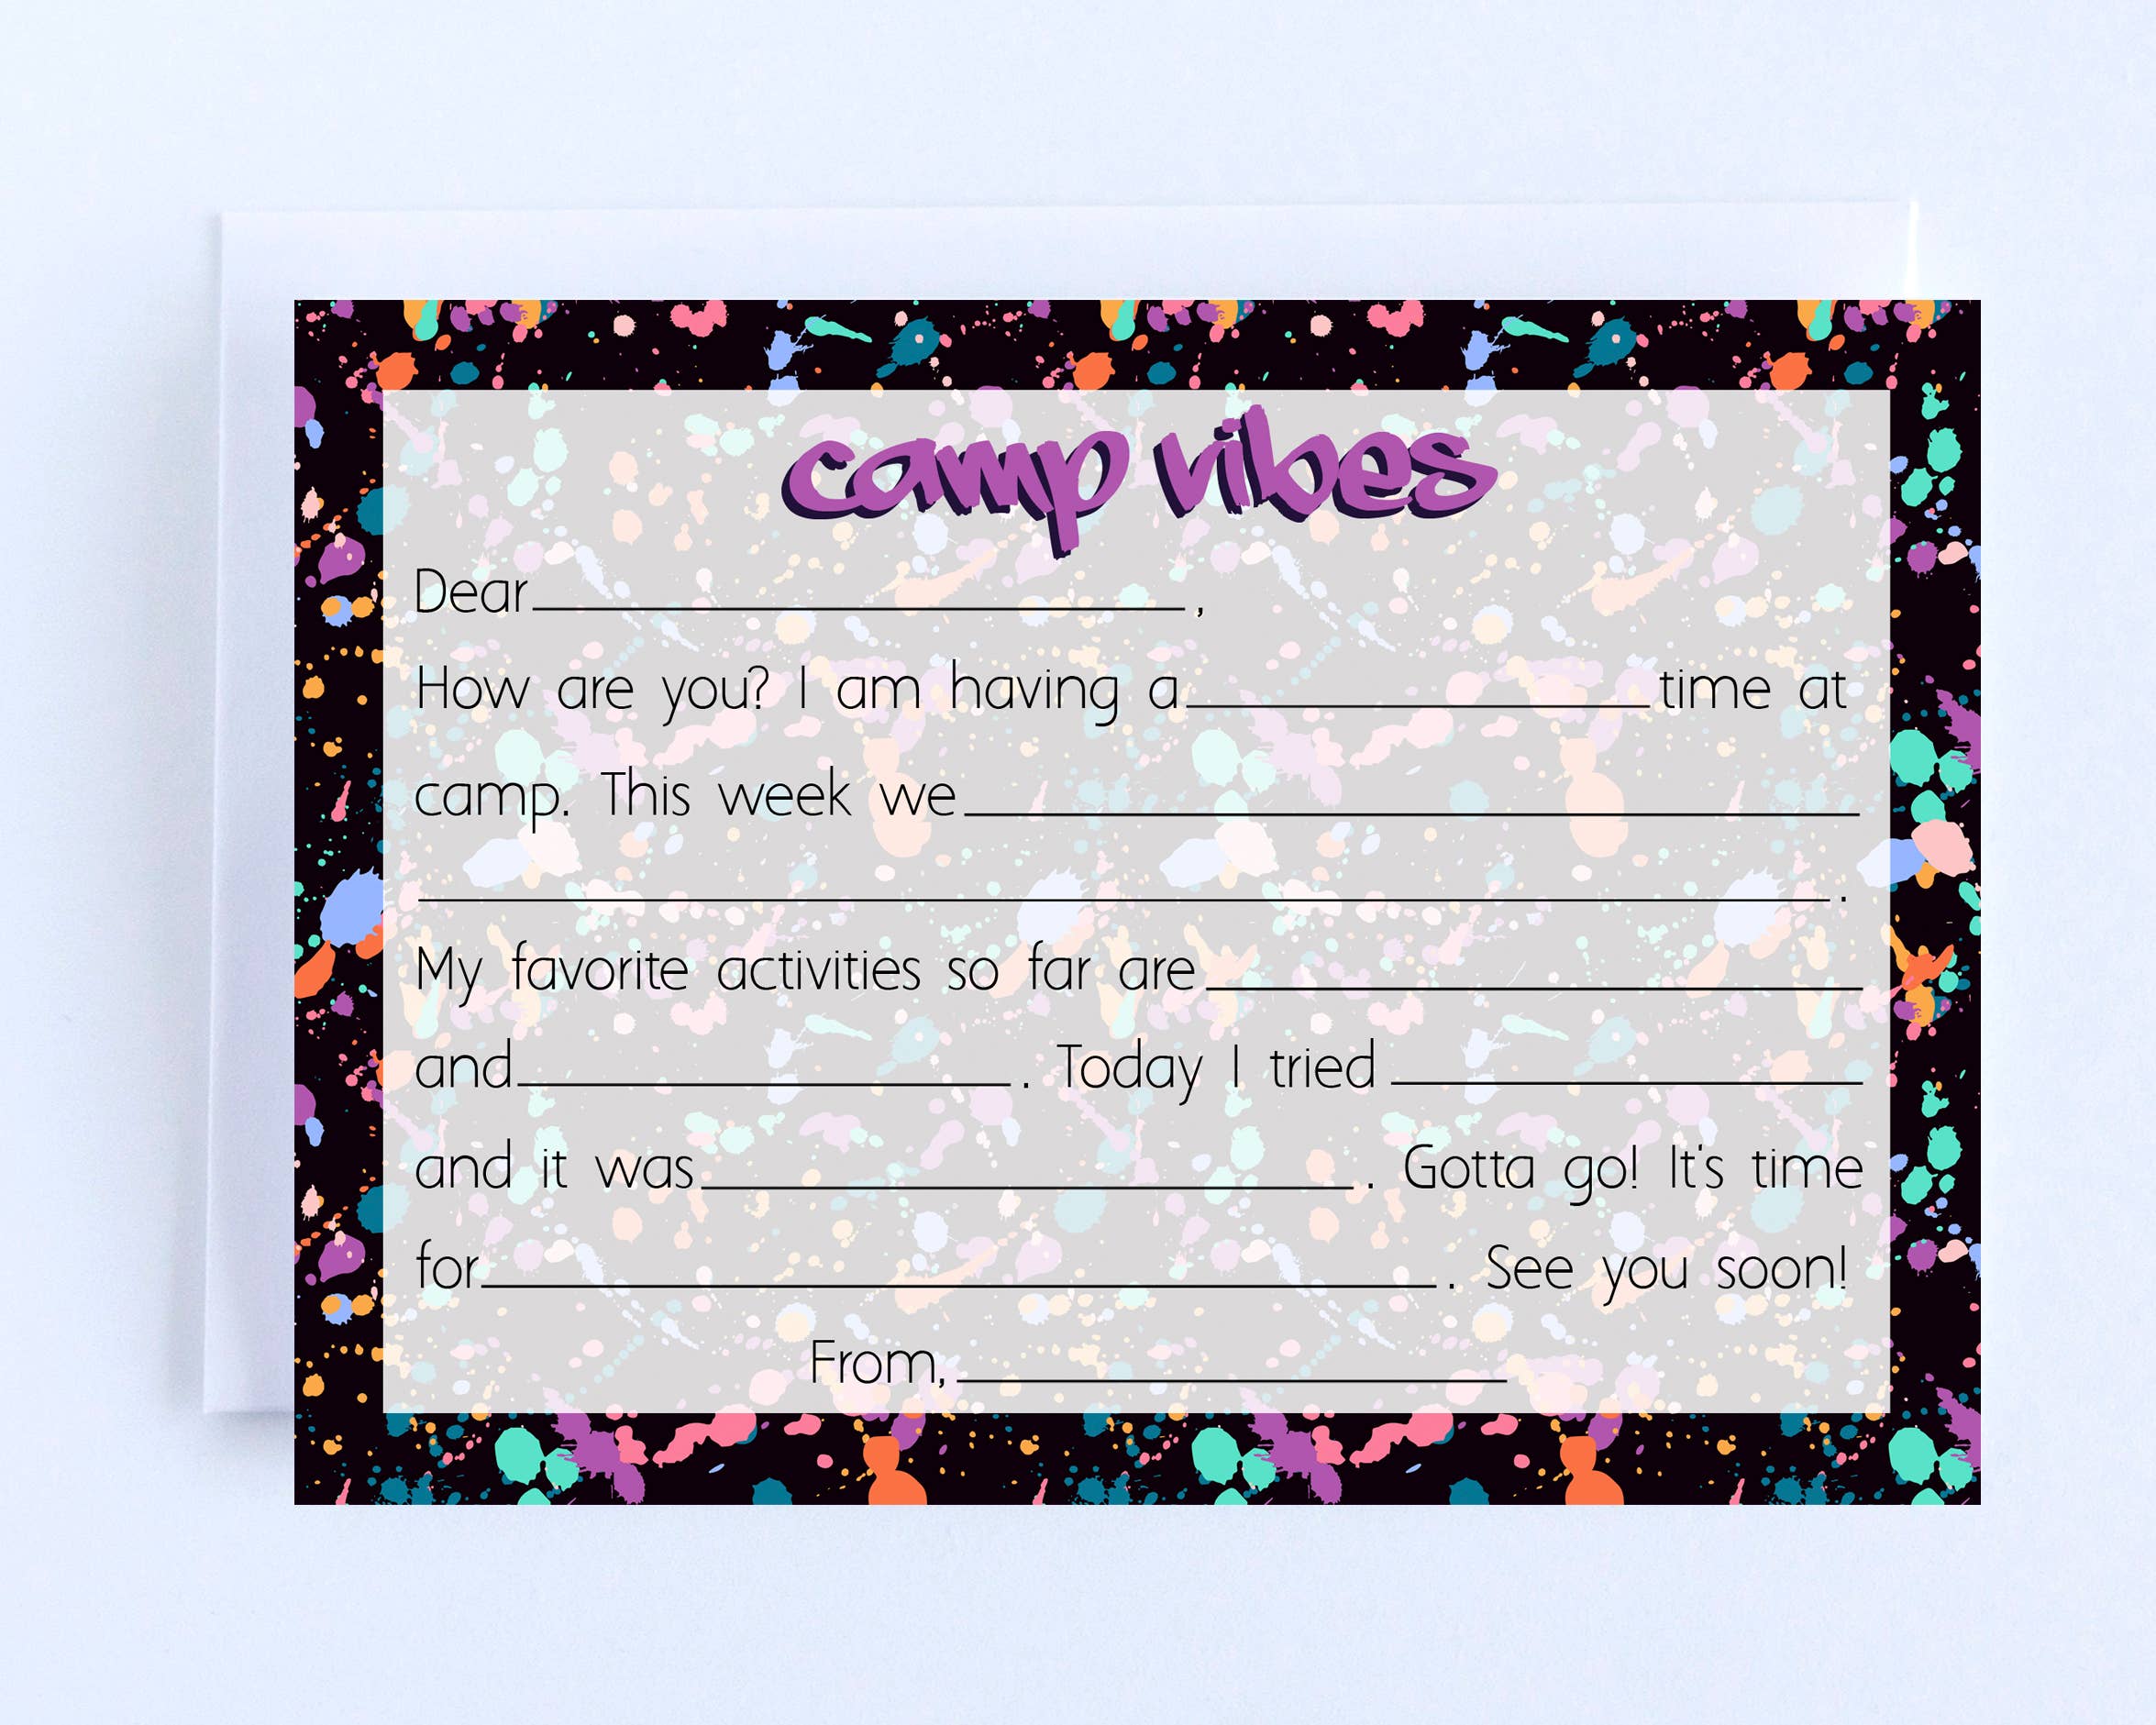 camp vibes
Dear____________________,
How are you? I am having a______________time at
camp. This week we____________________________
____________________________________________.
My favorite activities so far are____________________
and_______________. Today I tried______________
and it was____________________. Gotta go! It's time
for______________________________. See you soon!
From,_________________